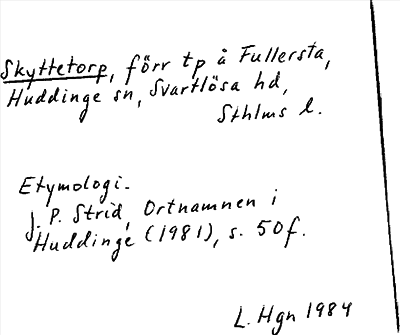 Skyttetorp, förr tp å Fullersta,
Huddinge sn, Svartlösa hd,
Sthlms l.
Etymologi.
J. P. Strid, Ortnamnen i
Huddinge (1981), s. 50f.
L. Hgn 1984